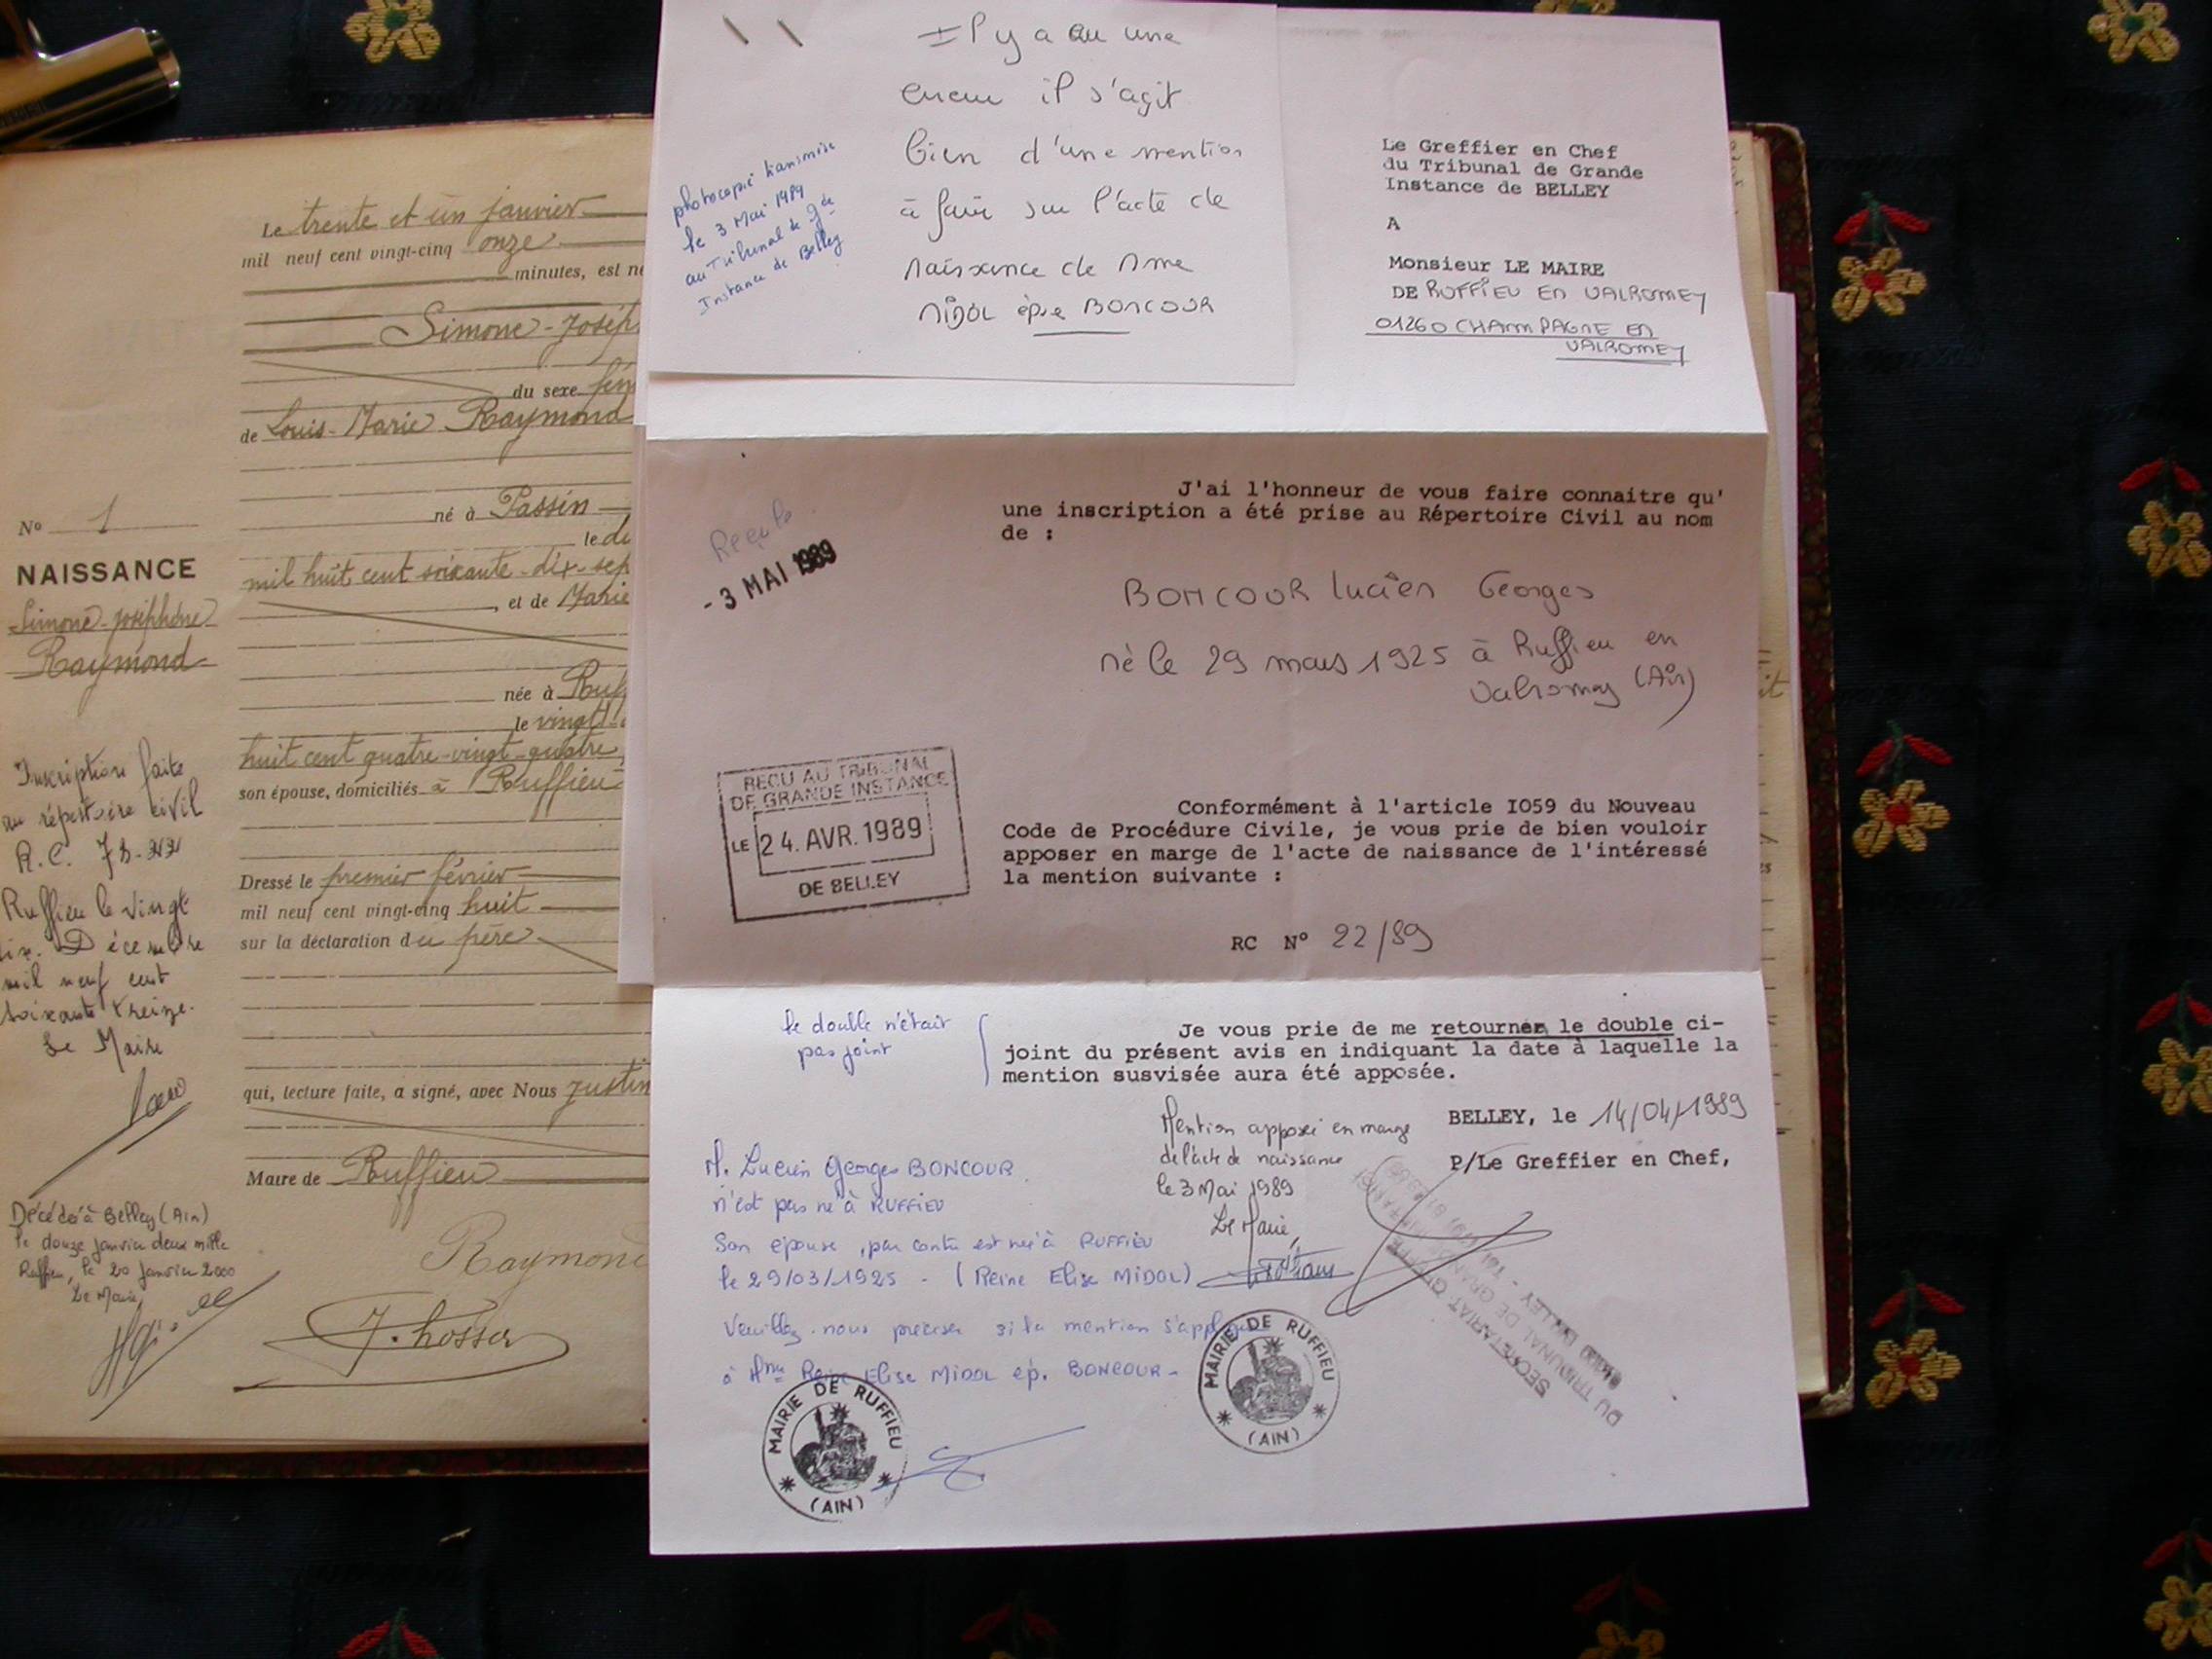 Le trente et un janvier
mil neuf cent vingt-cinq onze
minutes, est né
Simone-Joséph
du sexe fém
de Louis-Marie Raymond
né à Passin
le di
mil huit cent soixante-dix-sep
, et de Marie
née à Ruf
le vingt
huit cent quatre-vingt-quatre
son épouse, domiciliés à Ruffieu
Dressé le premier février
mil neuf cent vingt-cinq huit
sur la déclaration du père
qui, lecture faite, a signé, avec Nous Justin
Maire de Ruffieu
Raymond
J. hosser
No 1
NAISSANCE
Simone-Joséphine
Raymond
Inscription faite
au répertoire civil
R.C.
Ruffieu le vingt
six Décembre
mil neuf cent
soixante treize.
Le Maire
Décédé à Belley (Ain)
le douze janvier deux mille
Ruffieu, le 20 Janvier 2000
Le Maire,
Il y a eu une
erreur il s'agit
bien d'une mention
à faire sur l'acte de
naissance de Mme
MIDOL épse BONCOUR
photocopie transmise
le 3 Mai 1989
au Tribunal de Gde
Instance de Belley
Le Greffier en Chef
du Tribunal de Grande
Instance de BELLEY
A
Monsieur LE MAIRE
DE RUFFIEU EN VALROMEY
01260 CHAMPAGNE EN
VALROMEY
J'ai l'honneur de vous faire connaitre qu'
une inscription a été prise au Répertoire Civil au nom
de :
Reçu le
- 3 MAI 1989
BONCOUR Lucien Georges
né le 29 mars 1925 à Ruffieu en
Valromey (Ain)
RECU AU TRIBUNAL
DE GRANDE INSTANCE
LE 24. AVR. 1989
DE BELLEY
Conformément à l'article I059 du Nouveau
Code de Procédure Civile, je vous prie de bien vouloir
apposer en marge de l'acte de naissance de l'intéressé
la mention suivante :
RC N° 22/89
le double n'était
pas joint
Je vous prie de me retourner le double ci-
joint du présent avis en indiquant la date à laquelle la
mention susvisée aura été apposée.
BELLEY, le 14/04/1989
P/Le Greffier en Chef,
Mention apposée en marge
de l'acte de naissance
le 3 Mai 1989
Le Maire,
M. Lucien Georges BONCOUR
n'est pas né à RUFFIEU
Son épouse, par contre est née à RUFFIEU
le 29/03/1925 - (Reine Elise MIDOL)
Veuillez nous préciser si la mention s'applique
à Mme Reine Elise MIDOL ép. BONCOUR -
MAIRIE DE RUFFIEU
(AIN)
MAIRIE DE RUFFIEU
(AIN)
SECRETARIAT GREFFE
DU TRIBUNAL DE GRANDE INSTANCE